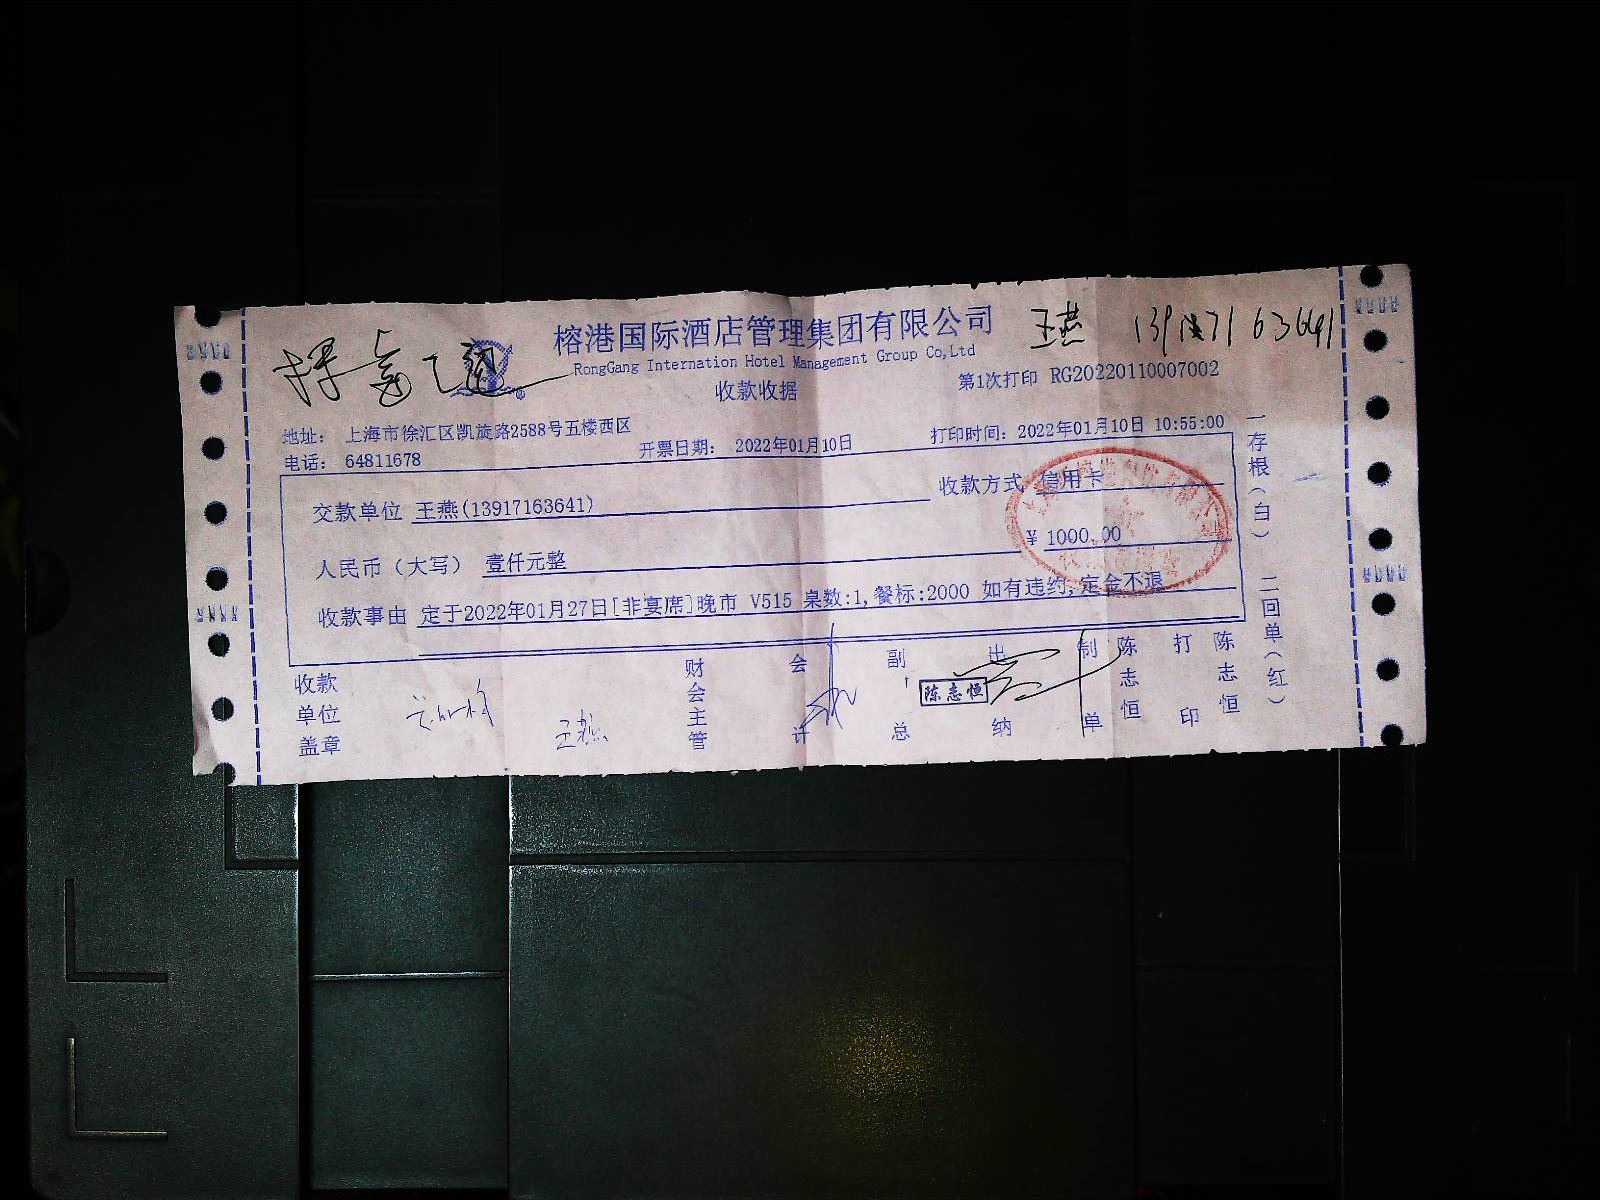 榕港国际酒店管理集团有限公司
王燕
RongGang Internation Hotel Management Group Co,Ltd
收款收据
第1次打印 RG20220110007002
地址: 上海市徐汇区凯旋路2588号五楼西区
电话: 64811678
开票日期: 2022年01月10日
打印时间: 2022年01月10日 10:55:00
交款单位 王燕(13917163641)
收款方式 信用卡
人民币（大写） 壹仟元整
¥ 1000.00
收款事由 定于2022年01月27日[非宴席]晚市 V515 桌数:1,餐标:2000 如有违约,定金不退
一存根(白) 二回单(红)
收款单位盖章
王燕
财会主管
会计
副总
出纳
陈志恒
制单
陈志恒
打印
陈志恒